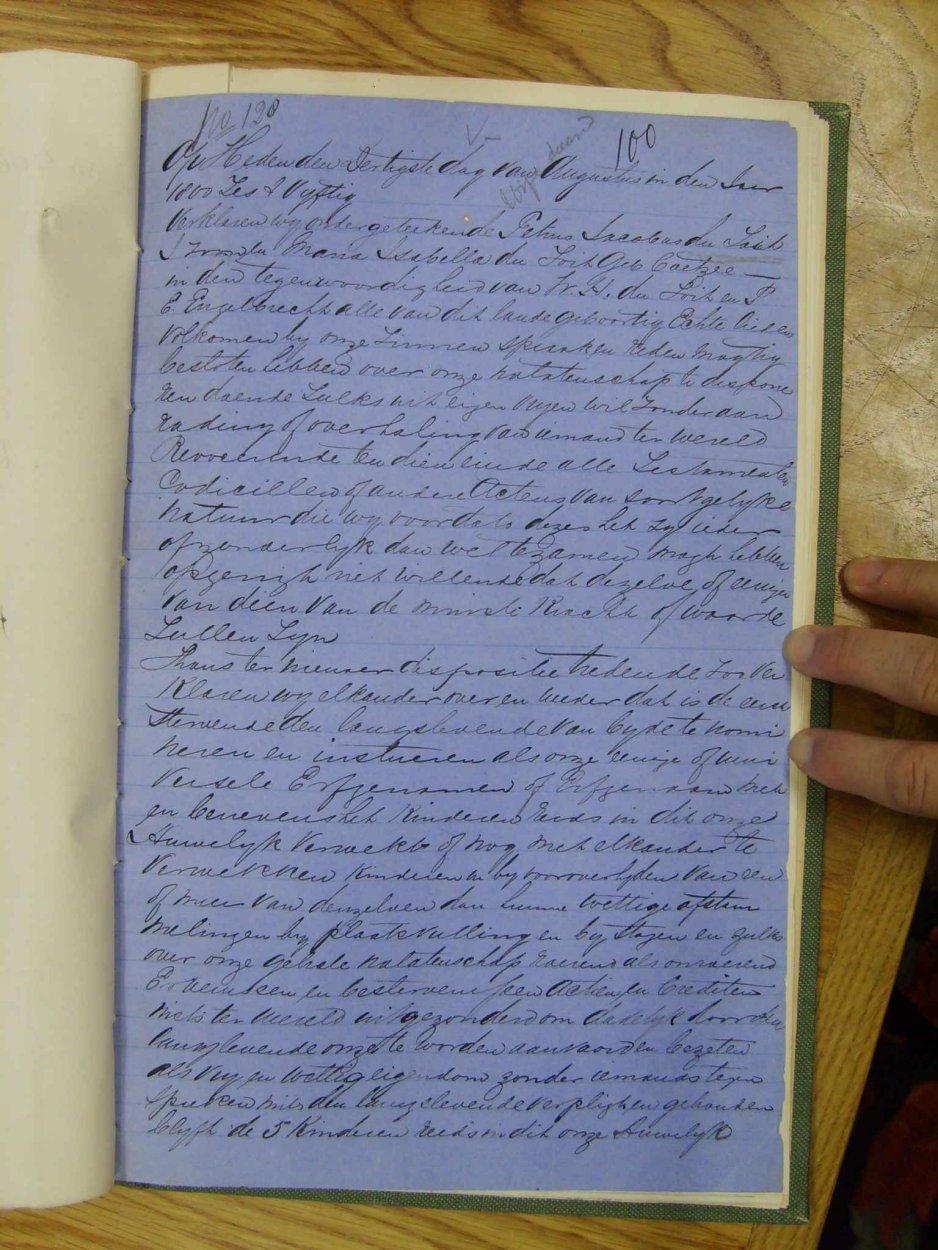 No 120
100
Op Heden den Dertigste dag van Augustus in den Jaar
1800 Zes & Vyftig
Verklaren wy ondergeteekende Petrus Jacobus du Toit
J zoon en Maria Isabella du Toit Geb Coetzee —
in den tegenwoordigheid van W. H. du Toit en P
E. Engelbrecht alle van dit lande geboortig Echte lieden
Volkomen by onze Zinnen Spraaken reden magtig
besloten hebben over onze natatenschap te dispone
ren doende Zulks uit eigen vryen wil zonder aan
rading of overhaling van iemand ter wereld
Revoceerende ten dien einde alle Testamenten
Codicillen of andere Actens van soortgelyke
natuur die wy voor dato dezes het zy ieder
afzonderlyk dan wel tezamen mogh hebben
opgerigh niet willende dat dezelve of eenigen
van dien van de minste Kracht of waarde
Zullen Zyn
Thans ter nieuwer dispositie tredende Zoo Ver
Klaren wy elkander over en weder dat is de eerst
Stervende den langslevende van byde te nomi
neren en instueren als onze eenige of univ
versele Erfgenamen of Erfgenaam met
en benevens het Kinderen reeds in dit onze
Huwelyk Verwekt of nog met elkander te
Verwekken Kinderen in by vooroverlyden van een
of meer van denzelven dan hunne wettige afstam
melingen by plaatsvulling en by stagen en zulks
over onze geheele natatenschap roerend als onroerend
Erveniken en besterveniffen Actien en Crediten
niets ter wereld uitgezonderd om dadelyk door den
langslevende onze te worden aanvaarden bezeten
als vry en wettig eigendom zonder iemands tegen
spreken mits den langslevende verplight en gehouden
blyft de 5 Kinderen reeds in dit onze Huwelyk